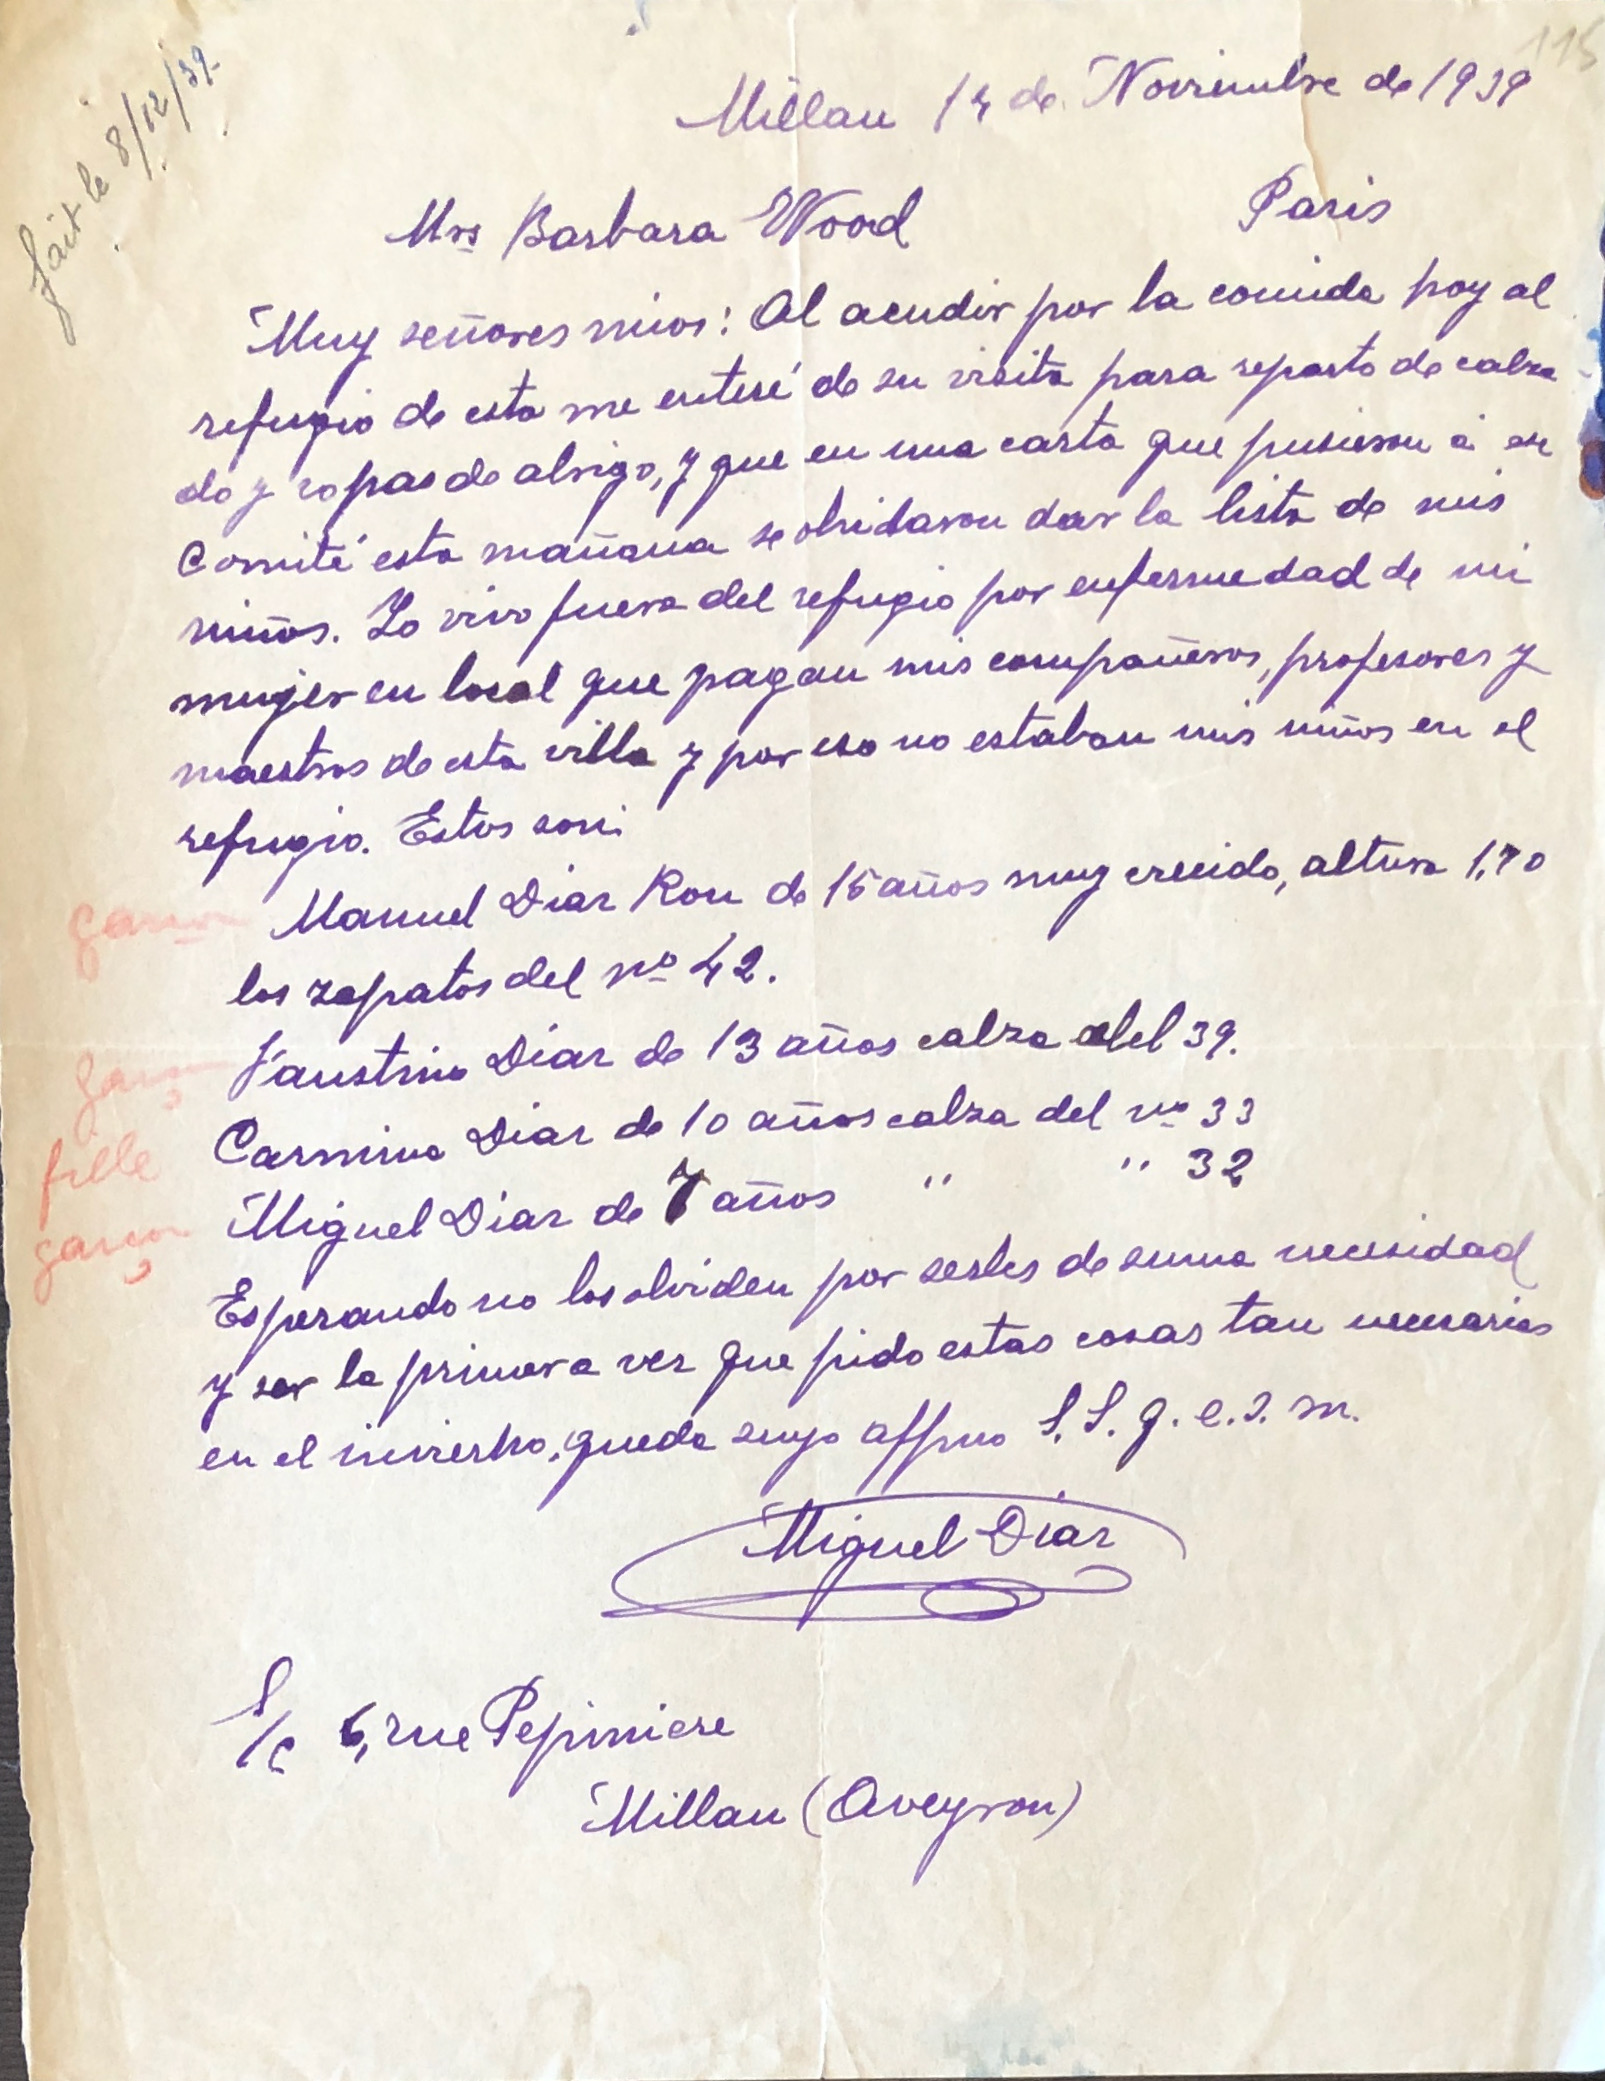 115
fait le 8/12/39.
Millau 14 de Noviembre de 1939
Mrs Barbara Wood Paris
Muy señores mios: Al acudir por la comida hoy al
refugio de esta me enteré de su visita para reparto de calza-
do y ropas de abrigo, y que en una carta que pusieron á ese
Comité esta mañana se olvidaron dar la lista de mis
niños. Yo vivo fuera del refugio por enfermedad de mi
mujer en local que pagan mis compañeros, profesores y
maestros de esta villa y por eso no estaban mis niños en el
refugio. Estos son:
garçon Manuel Diaz Ron de 15 años muy crecido, altura 1,70
los zapatos del nº 42.
garçon Faustino Diaz de 13 años calza del 39.
fille Carmina Diaz de 10 años calza del nº 33
garçon Miguel Diaz de 7 años " " 32
Esperando no los olviden por serles de suma necesidad
y ser la primera vez que pido estas cosas tan necesarias
en el invierno, queda suyo affmo S. S. q. e. s. m.
Miguel Diaz
S/c 6, rue Pepiniere
Millau (Aveyron)